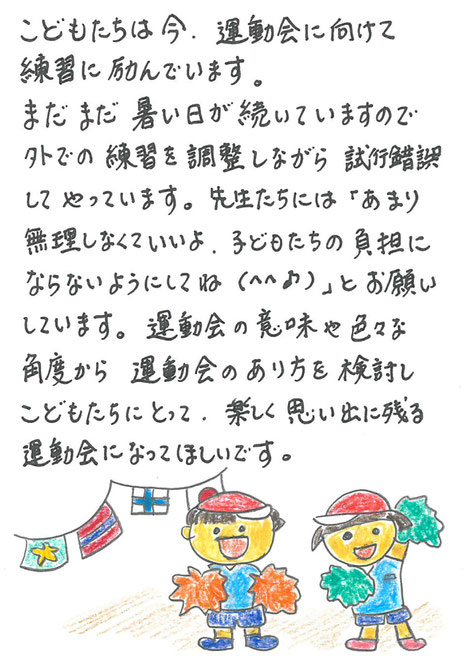 こどもたちは今、運動会に向けて
練習に励んでいます。
まだまだ暑い日が続いていますので
外での練習を調整しながら試行錯誤
してやっています。先生たちには「あまり
無理しなくていいよ、子どもたちの負担に
ならないようにしてね(^^♪)」とお願い
しています。運動会の意味や色々な
角度から運動会のあり方を検討し
こどもたちにとって、楽しく思い出に残る
運動会になってほしいです。